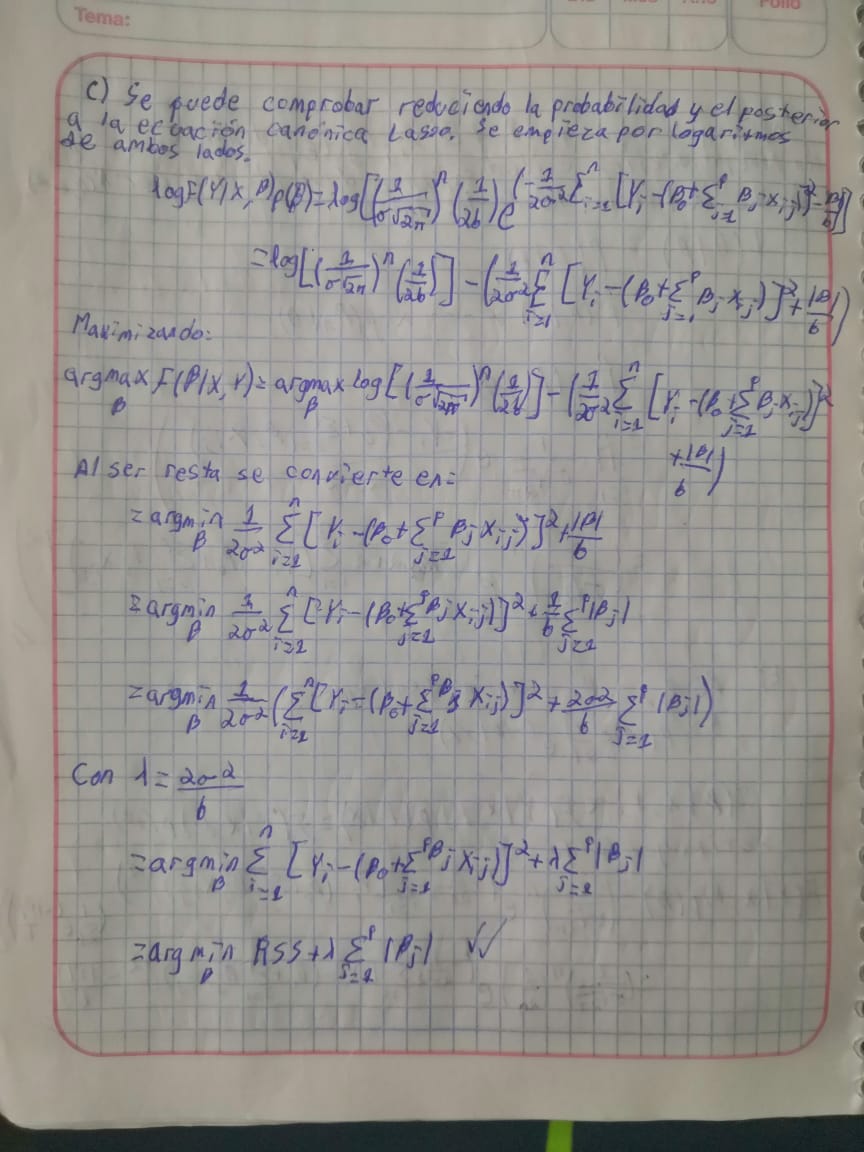 Tema:
Folio
c) Se puede comprobar reduciendo la probabilidad y el posterior
a la ecuación canónica Lasso. Se empieza por logaritmos
de ambos lados.
log F(Y|X, β)p(β) = log[(1/(σ√2π))^n (1/2b) e^(-1/2σ² Σ_{i=1}^n [Y_i - (β_0 + Σ_{j=1}^p β_j x_ij)]² - |β|/b)]
= log[(1/(σ√2π))^n (1/2b)] - (1/2σ² Σ_{i=1}^n [Y_i - (β_0 + Σ_{j=1}^p β_j x_ij)]² + |β|/b)
Maximizando:
argmax_β F(β|X, Y) = argmax_β log[(1/(σ√2π))^n (1/2b)] - (1/2σ² Σ_{i=1}^n [Y_i - (β_0 + Σ_{j=1}^p β_j x_ij)]²
+ |β|/b)
Al ser resta se convierte en:
= argmin_β 1/2σ² Σ_{i=1}^n [Y_i - (β_0 + Σ_{j=1}^p β_j x_ij)]² + |β|/b
= argmin_β 1/2σ² Σ_{i=1}^n [Y_i - (β_0 + Σ_{j=1}^p β_j x_ij)]² + 1/b Σ_{j=1}^p |β_j|
= argmin_β 1/2σ² (Σ_{i=1}^n [Y_i - (β_0 + Σ_{j=1}^p β_j x_ij)]² + 2σ²/b Σ_{j=1}^p |β_j|)
Con λ = 2σ²/b
= argmin_β Σ_{i=1}^n [Y_i - (β_0 + Σ_{j=1}^p β_j x_ij)]² + λ Σ_{j=1}^p |β_j|
= argmin_β RSS + λ Σ_{j=1}^p |β_j| ✓✓